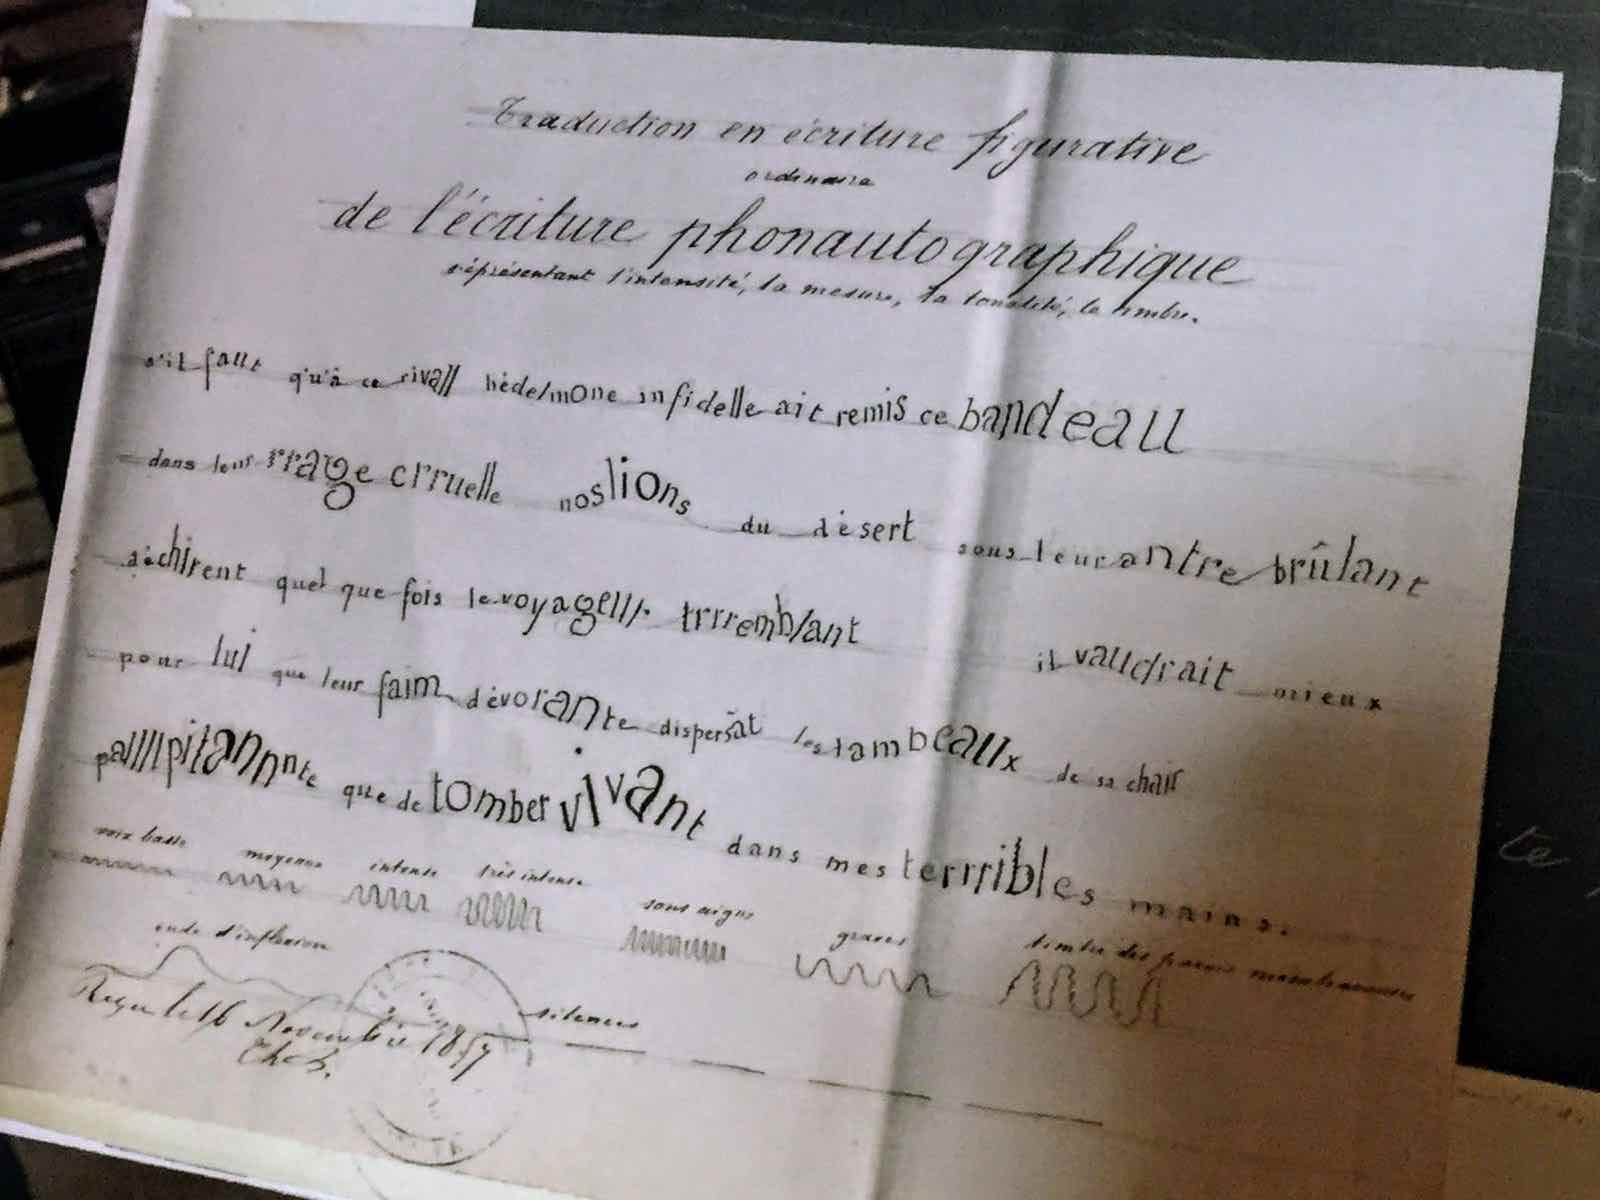 Traduction en écriture figurative
ordinaire
de l'écriture phonautographique
représentant l'intensité, la mesure, la tonalité, le timbre.
s'il faut qu'à ce rivall hèdelmone infidelle ait remis ce bandeau
dans leur rrage crruelle nos lions du désert sous leur antre brûlant
déchirent quel que fois le voyageur trrremblant il vaudrait mieux
pour lui que leur faim dévorante dispersât les lambeaux de sa chair
palllpitannnte que de tomber vivant dans mes terrribles mains.
voix basse moyenne intense très intense sons aigus graves timbre des parois membraneuses
onde d'inflexion
silences
Reçu le 16 Novembre 1857
Ch. B.
te